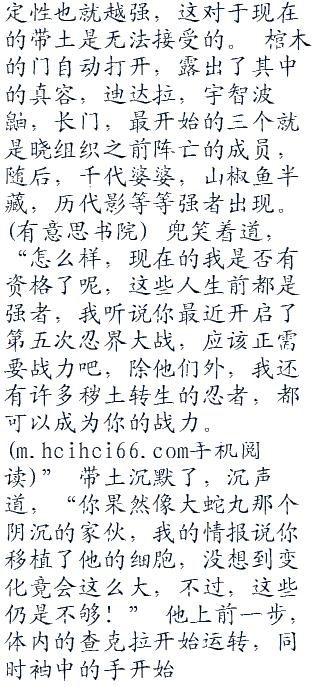 定性也就越强，这对于现在
的带土是无法接受的。 棺木
的门自动打开，露出了其中
的真容，迪达拉，宇智波
鼬，长门，最开始的三个就
是晓组织之前阵亡的成员，
随后，千代婆婆，山椒鱼半
藏，历代影等等强者出现。
(有意思书院) 兜笑着道，
“怎么样，现在的我是否有
资格了呢，这些人生前都是
强者，我听说你最近开启了
第五次忍界大战，应该正需
要战力吧，除他们外，我还
有许多秽土转生的忍者，都
可以成为你的战力。
(m.hcihci66.com手机阅
读)” 带土沉默了，沉声
道，“你果然像大蛇丸那个
阴沉的家伙，我的情报说你
移植了他的细胞，没想到变
化竟会这么大，不过，这些
仍是不够！” 他上前一步，
体内的查克拉开始运转，同
时袖中的手开始